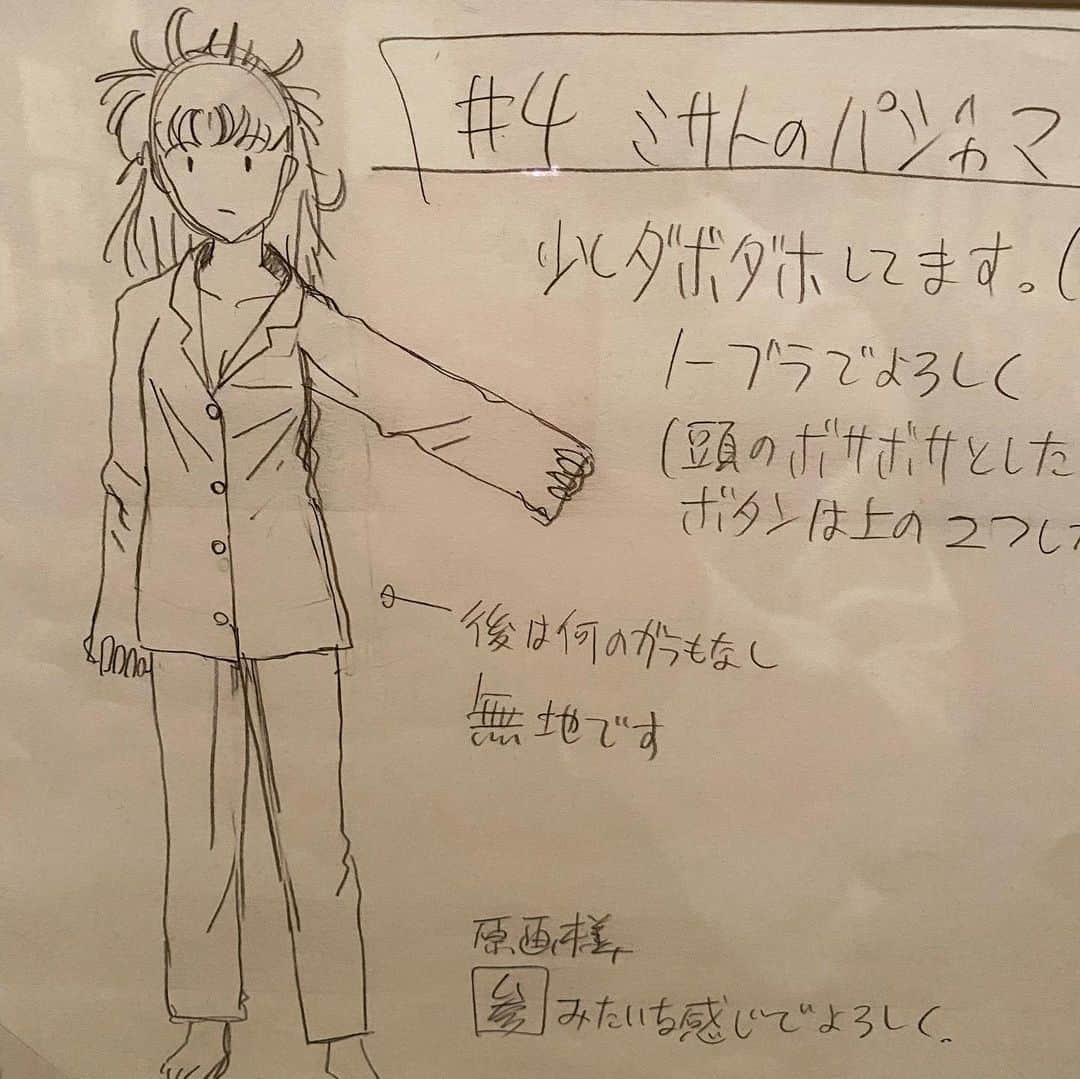 #4 ミサトのパジャマ
少しダボダボしてます。(
ノーブラでよろしく
(頭のボサボサとした
ボタンは上の2つした
後は何のがらもなし
無地です
原画様
参 みたいな感じでよろしく。